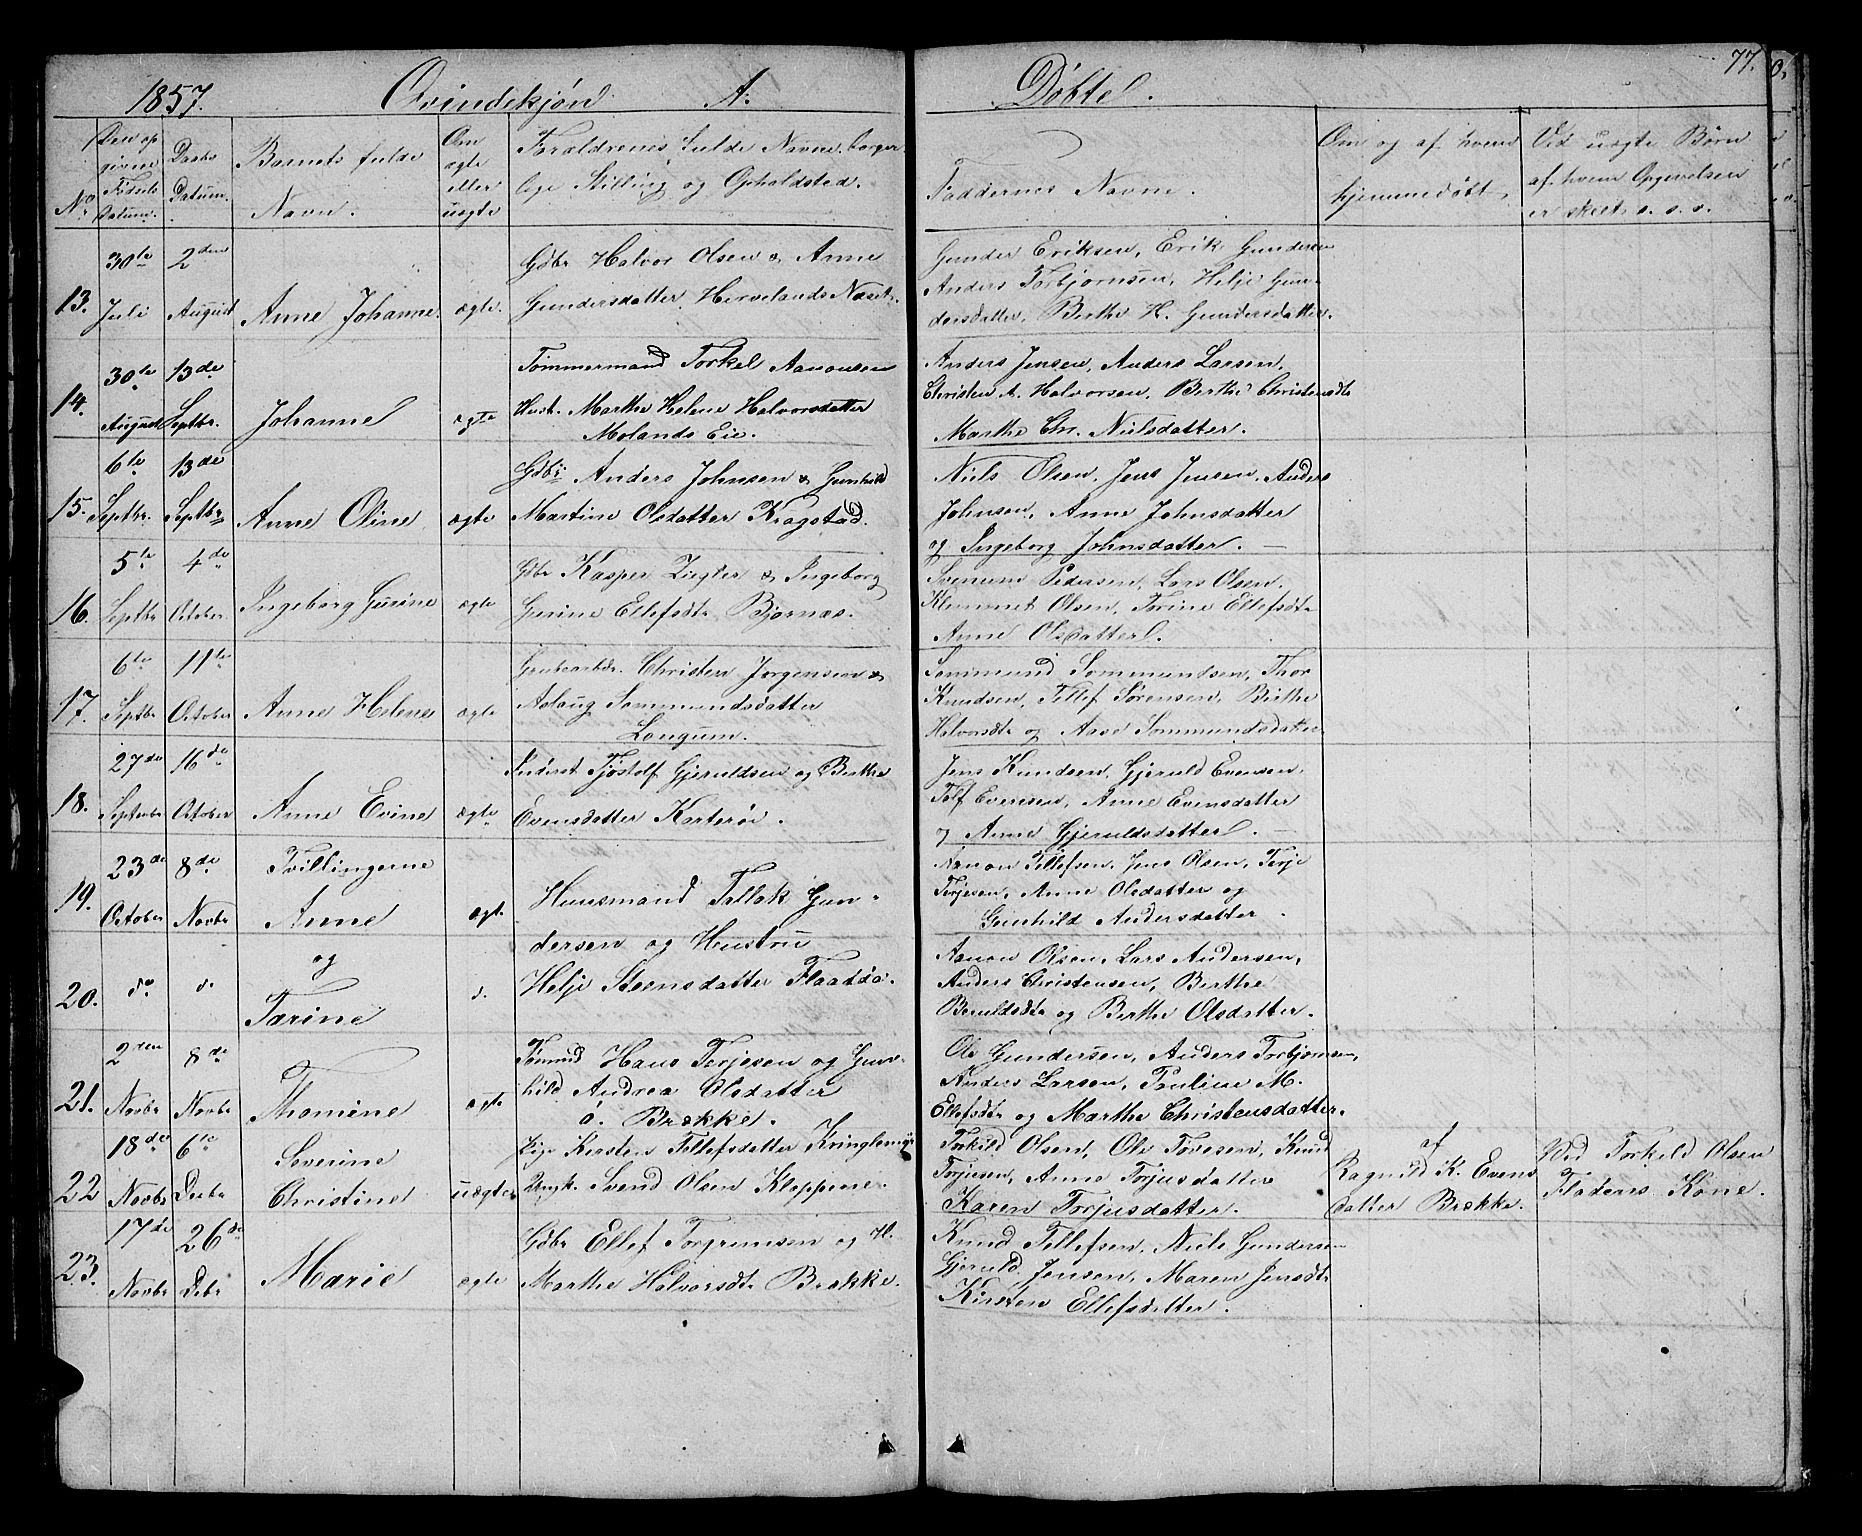 1857. Qvindekjön A: Döbte. 77.
No. Den opgivne Födsels Datum. Daabs Datum. Barnets fulde Navn. Om ægte eller uægte Forældrenes fulde Navne, borgerlige Stilling og Opholdsted. Faddernes Navne. Om og af hvem hjemmedöbt. Ved uægte Börn af hvem Opgivelsen er skeet o. s. v.
13. 30te Juli 2den August Anne Johanne. ægte.
Gdbr Halvor Olsen & Anne
Gundersdatter Hervelands Næset.
Gunder Eriksen, Erik Gundersen
Anders Torbjörnsen, Helje Gun-
dersdatter, Berthe H. Gundersdatter.
14. 30te August 13de Septbr. Johanne ægte
Tömmermand Torkel Aanonsen
Hust. Marthe Helene Halvorsdatter
Molands Eie.
Anders Jensen, Anders Larsen,
Christen A. Halvorsen, Berthe Christensdt
Marthe Chr. Nielsdatter.
15. 6te Septbr. 13de Septbr Anne Oline ægte
Gdbr Anders Johnsen & Gunhild
Martine Olsdatter Kragstad.
Niels Olsen, Jens Jensen, Anders
Johnsen, Anne Johnsdatter
og Ingeborg Johnsdatter.
16. 5te Septbr 4de October Ingeborg Gurine ægte
Gdbr Kasper Ziegler & Ingeborg
Gurine Ellefsdtr Bjornæs.
Svenum Pedersen, Lars Olsen,
Klemmet Olsen, Torine Ellefsdt
Anne Olsdatter.
17. 6te Septbr 11te October Anne Helene ægte
Grubearbdr. Christen Jorgensen &
Aslaug Sommundsdatter
Langum.
Sommund Sommundsen, Thor
Knudsen, Tellef Sörensen, Birthe
Halvorsdt og Aase Sommundsdatter
18. 27de Septembr 16de October Anne Evine ægte
Inderst Tjöstolf Gjeruldsen og Berthe
Evensdatter Karteröi.
Jens Knudsen, Gjeruld Evensen,
Tolf Evensen, Anne Evensdatter
og Anne Gjeruldsdatter.
19. 23de October 8de Novbr Tvillingerne Anne ægt.
Huusmand Tellak Gun-
dersen og Hustru
Helje Steensdatter Flaaddö.
Aanon Tellefsen, Jens Olsen, Terje
Terjesen, Anne Olsdatter og
Gunhild Andersdatter.
20. do d. og Tarine d.
Aanon Olsen, Lars Andersen,
Anders Christensen, Berthe
Beruldsdt og Berthe Olsdatter.
21. 2den Novbr 8de Novbr Thomine ægte
Tömmd Hans Terjesen og Gun-
hild Andrea Olsdatter
ö. Brække.
Ole Gundersen, Anders Torbjörnsen,
Anders Larsen, Pauline M.
Ellefsdt og Marthe Christensdatter.
22 18de Novbr 6te Decbr Severine Christine uægte
Pige Kirsten Tellefsdatter Kringlemyr
Ungk. Svend Olsen Kloppene.
Torkild Olsen, Ole Tovesen, Knud
Torjusen, Anne Torjusdatter
Karen Torjusdatter.
af Ragnild K. Evensdatter Brække.
Ved Torkeld Olsen Fladens Kone.
23. 17de Novbr 26de Debr Marie ægte
Gdbr Ellef Torgrimsen og H.
Marthe Halvorsdt Brække.
Knud Tellefsen, Niels Gundersen
Gjeruld Jensen, Maren Jensdt
Kirsten Ellefsdatter.